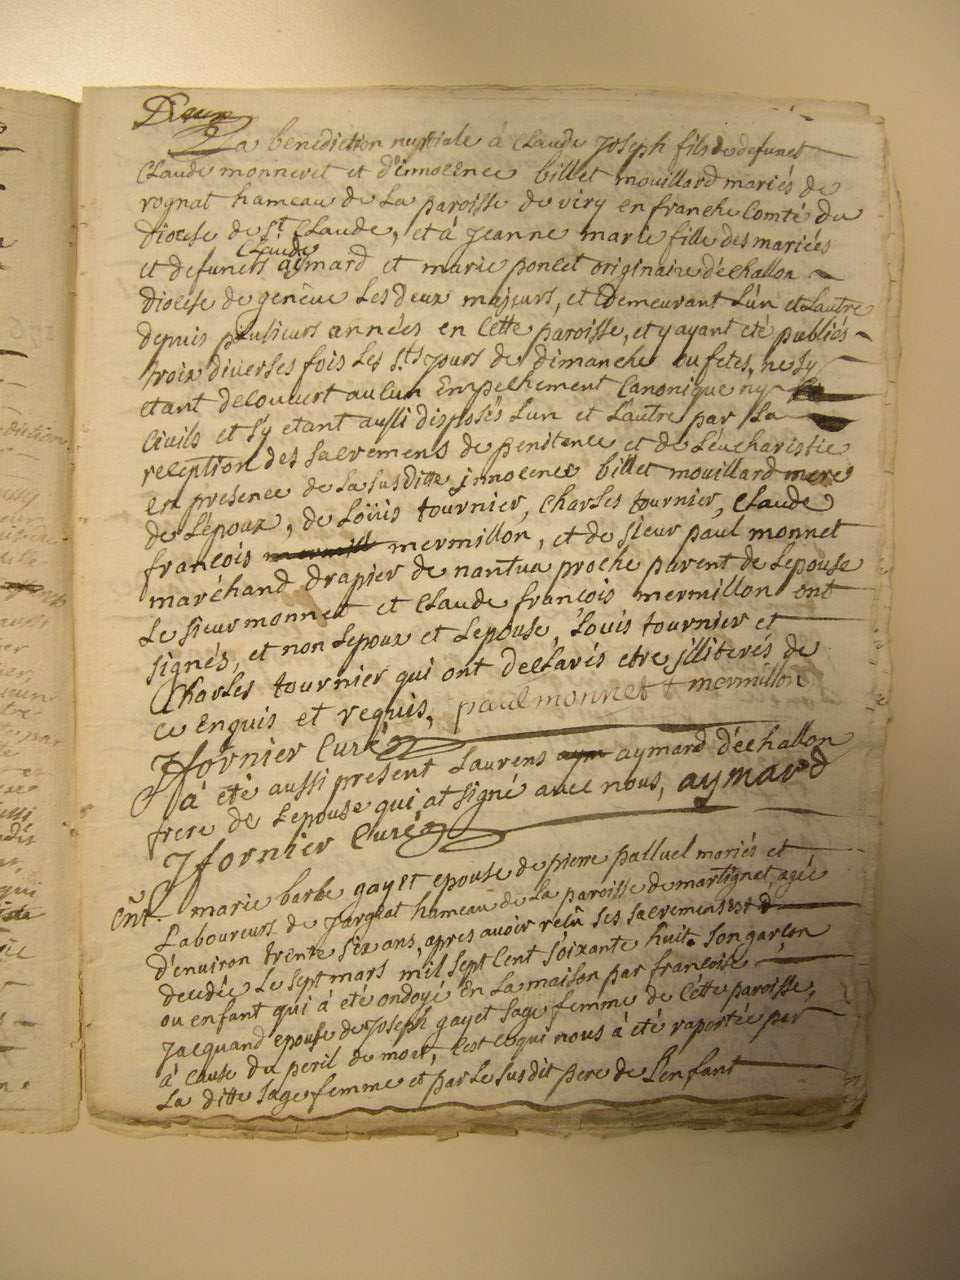 La benediction nuptiale à Claude Joseph fils de defunct
Claude monneret et d'innocence billet mouillard mariés de
rognat hameau de La paroisse de viry en franche Comté du
Diocese de St. Claude, et à Jeanne marie fille des mariées
Claude
et defuncts aymard et marie poncet originaire d'échallon
Diocese de genéve Les deux majeurs, et demeurant L'un et Lautre
depuis plusieurs années en Cette paroisse, et y ayant été publiés
trois diverses fois Les Sts jours de dimanche ou fetes, ne sy
etant decouvert aucun Empechement Canonique ny
Civils et sy etant aussi disposés Lun et Lautre par La
reception des sacremens de penitence et de Leucharistie
en presence de La susditte innocence billet mouillard mere
de Lépoux, de Loüis tournier, Charles tournier, Claude
françois mermill mermillon, et de sieur paul monnet
marchand drapier de nantua proche parent de Lepouse
Le sieur monnet et Claude françois mermillon ont
signés, et non Lepoux et Lepouse, Louis tournier et
Charles tournier qui ont declarés etre illiterés de
ce Enquis et requis, paul monnet mermillon
Jfornier Curé
à été aussi present Laurens aym aymard d'échallon
frere de Lepouse qui at signé avec nous, aymard
Jfornier Curé
Ent. marie barbe gayet epouse de pierre palluel mariés et
Laboureurs de Jargeat hameau de La paroisse de martignat agée
d'environ trente six ans, apres avoir reçû ses sacremens est d
decedée Le sept mars mil sept Cent soixante huit. Son garçon
ou enfant qui à été ondoyé en La maison par françoise
Jacquand epouse de Joseph gayet sage femme de Cette paroisse,
à Cause du peril de mort, C'est ce qui nous à été raportée par
La ditte sage femme et par Le susdit pere de L'enfant